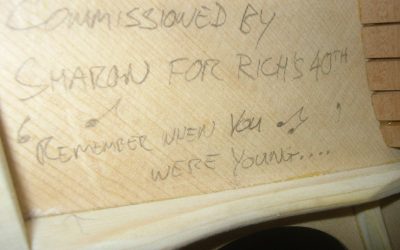 COMMISSIONED BY
SHARON FOR RICH'S 40TH
“REMEMBER WHEN YOU
WERE YOUNG....